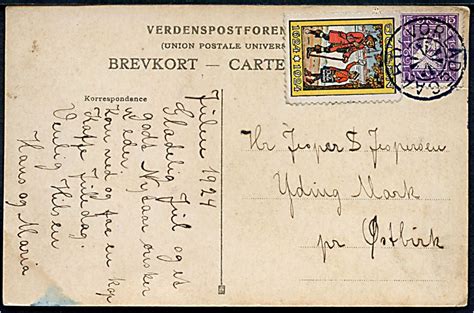 VERDENSPOSTFOREN
(UNION POSTALE UNIVER
BREVKORT — CARTE
Korrespondance
Julen 1924
Glædelig Jul og et
godt Nytaar ønsker
vi eder.
Kom ned og faa en kop
Kaffe Juledag.
Venlig Hilsen
Hans og Maria
1624 1924
15
Hr Jesper S Jespersen
Yding Mark
pr Østbirk